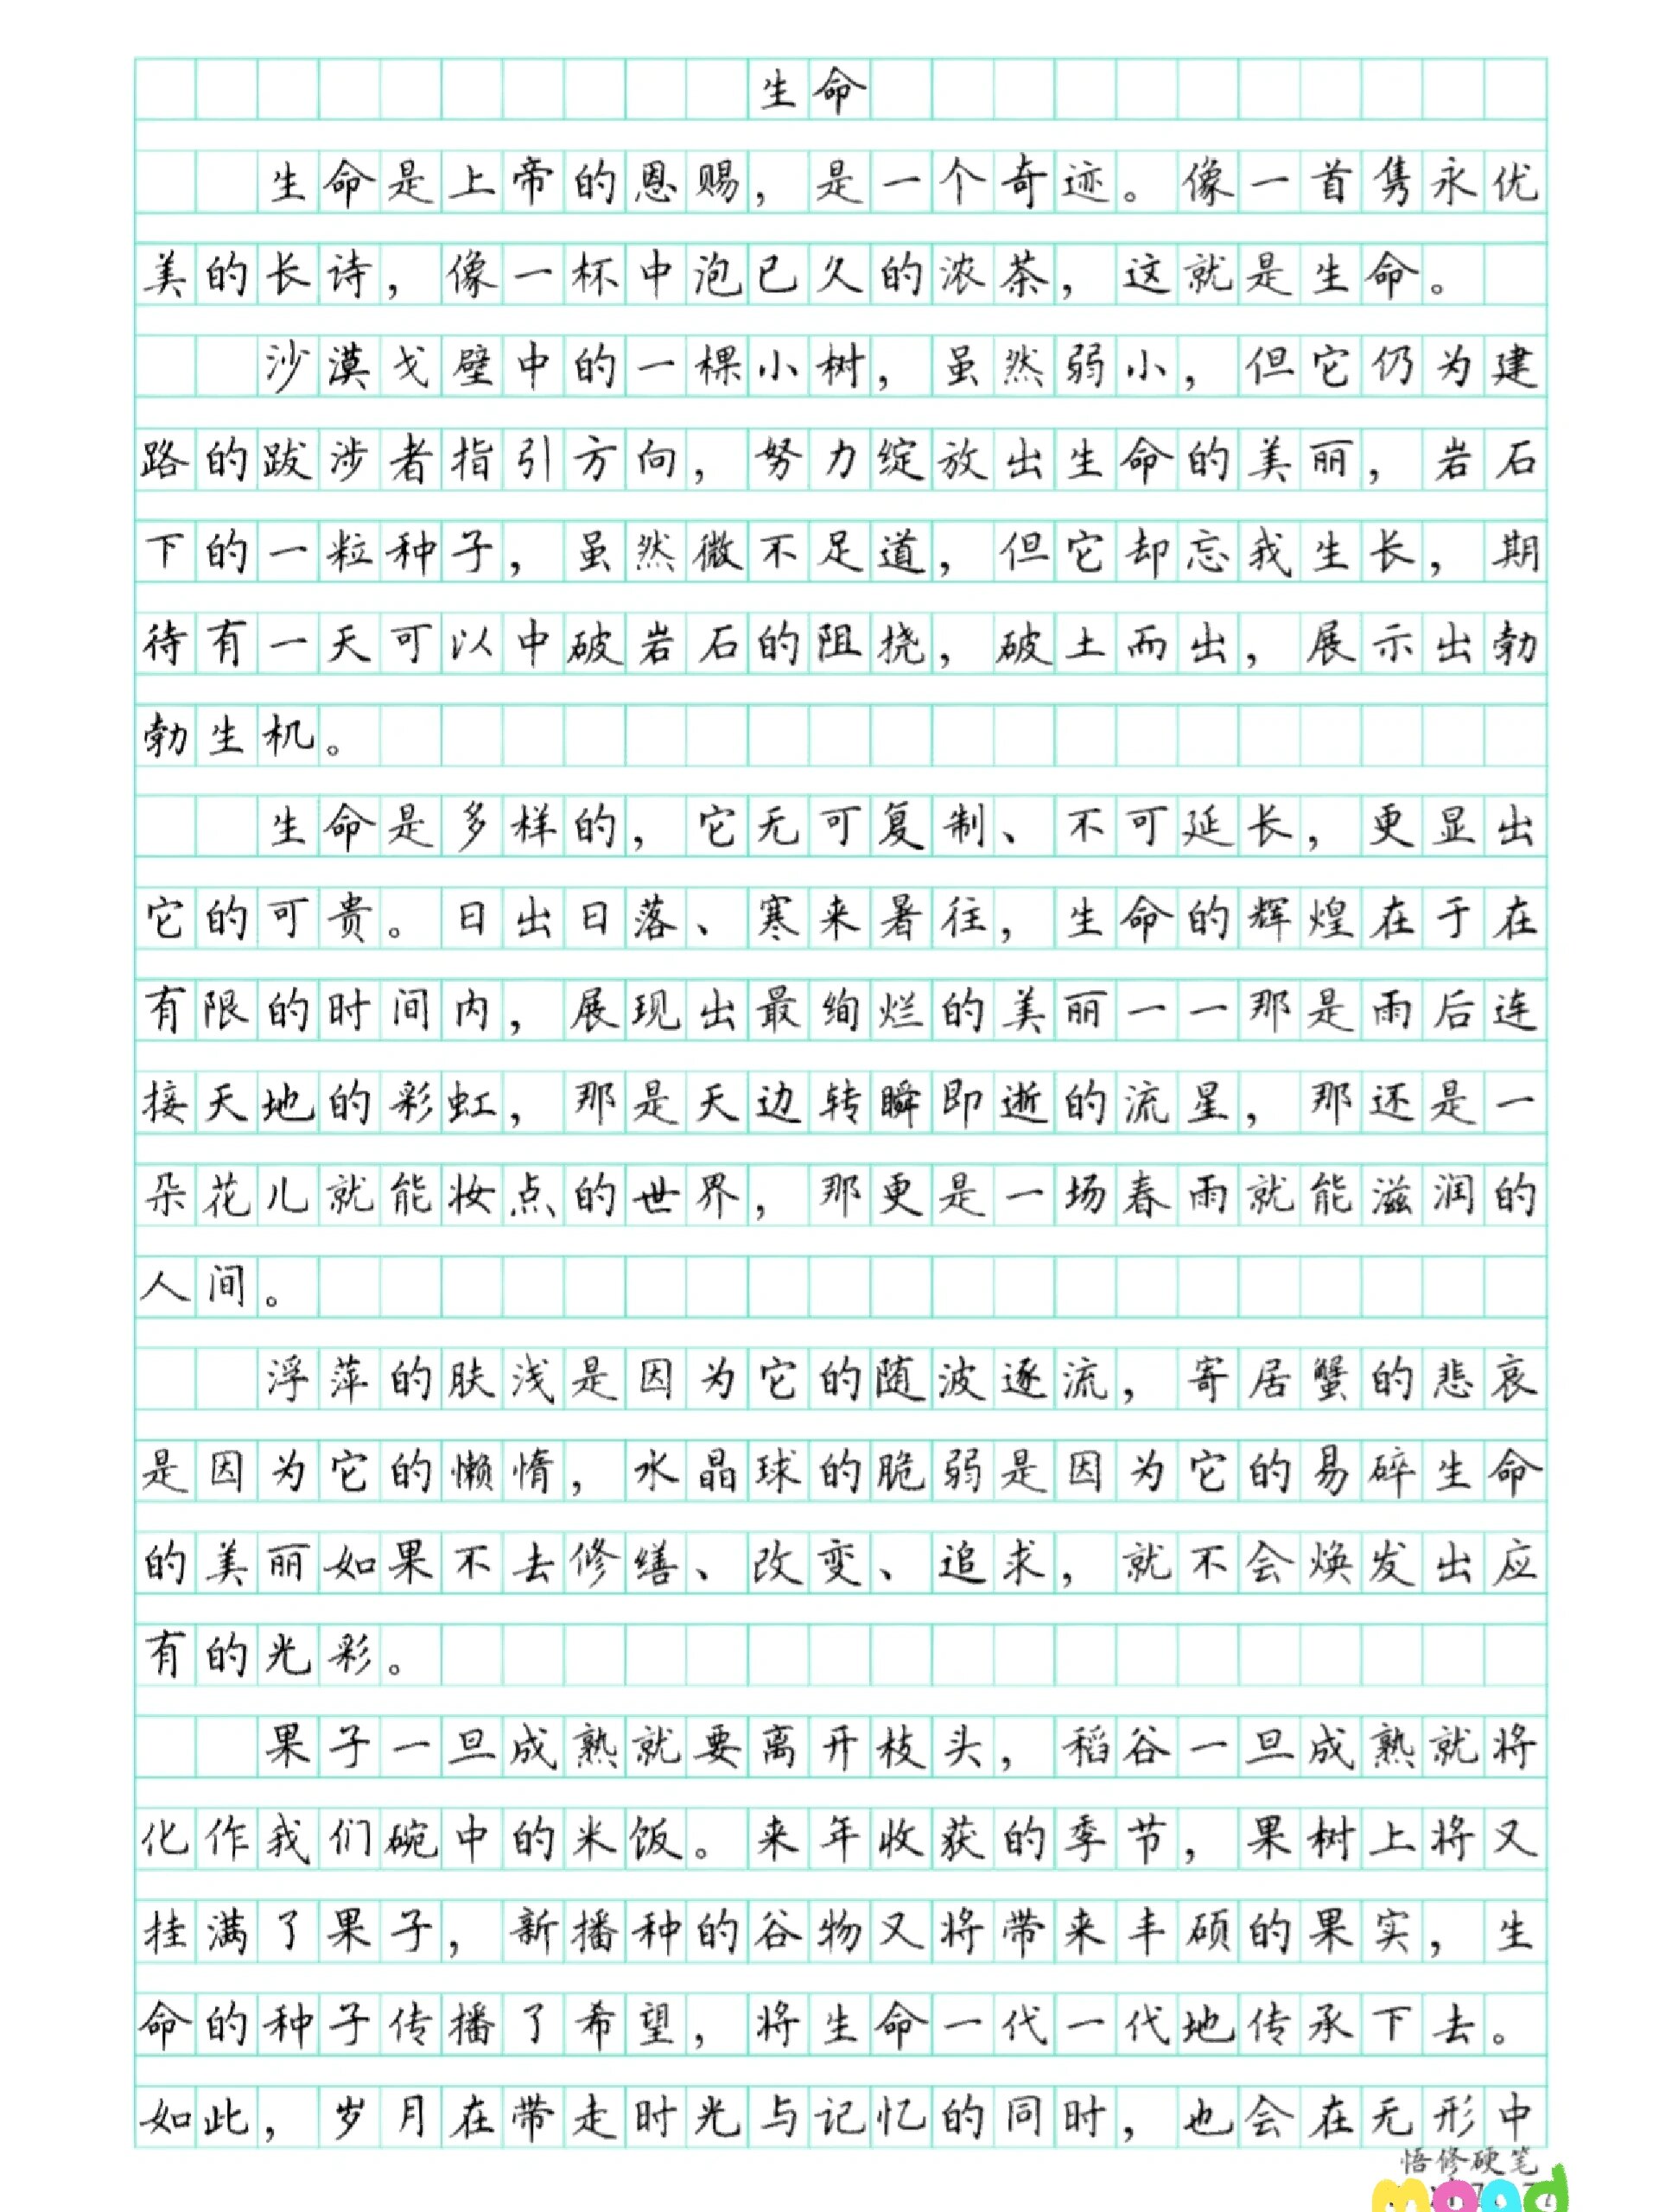 生命
生命是上帝的恩赐，是一个奇迹。像一首隽永优
美的长诗，像一杯中泡已久的浓茶，这就是生命。
沙漠戈壁中的一棵小树，虽然弱小，但它仍为建
路的跋涉者指引方向，努力绽放出生命的美丽，岩石
下的一粒种子，虽然微不足道，但它却忘我生长，期
待有一天可以中破岩石的阻挠，破土而出，展示出勃
勃生机。
生命是多样的，它无可复制、不可延长，更显出
它的可贵。日出日落、寒来暑往，生命的辉煌在于在
有限的时间内，展现出最绚烂的美丽一一那是雨后连
接天地的彩虹，那是天边转瞬即逝的流星，那还是一
朵花儿就能妆点的世界，那更是一场春雨就能滋润的
人间。
浮萍的肤浅是因为它的随波逐流，寄居蟹的悲哀
是因为它的懒惰，水晶球的脆弱是因为它的易碎生命
的美丽如果不去修缮、改变、追求，就不会焕发出应
有的光彩。
果子一旦成熟就要离开枝头，稻谷一旦成熟就将
化作我们碗中的米饭。来年收获的季节，果树上将又
挂满了果子，新播种的谷物又将带来丰硕的果实，生
命的种子传播了希望，将生命一代一代地传承下去。
如此，岁月在带走时光与记忆的同时，也会在无形中
悟修硬笔
mood